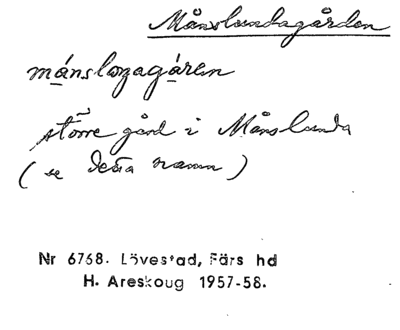 Månslundagården
månsloŋagáren
större gård i Månslunda
(se detta namn)
Nr 6768. Lövestad, Färs hd
H. Areskoug 1957-58.